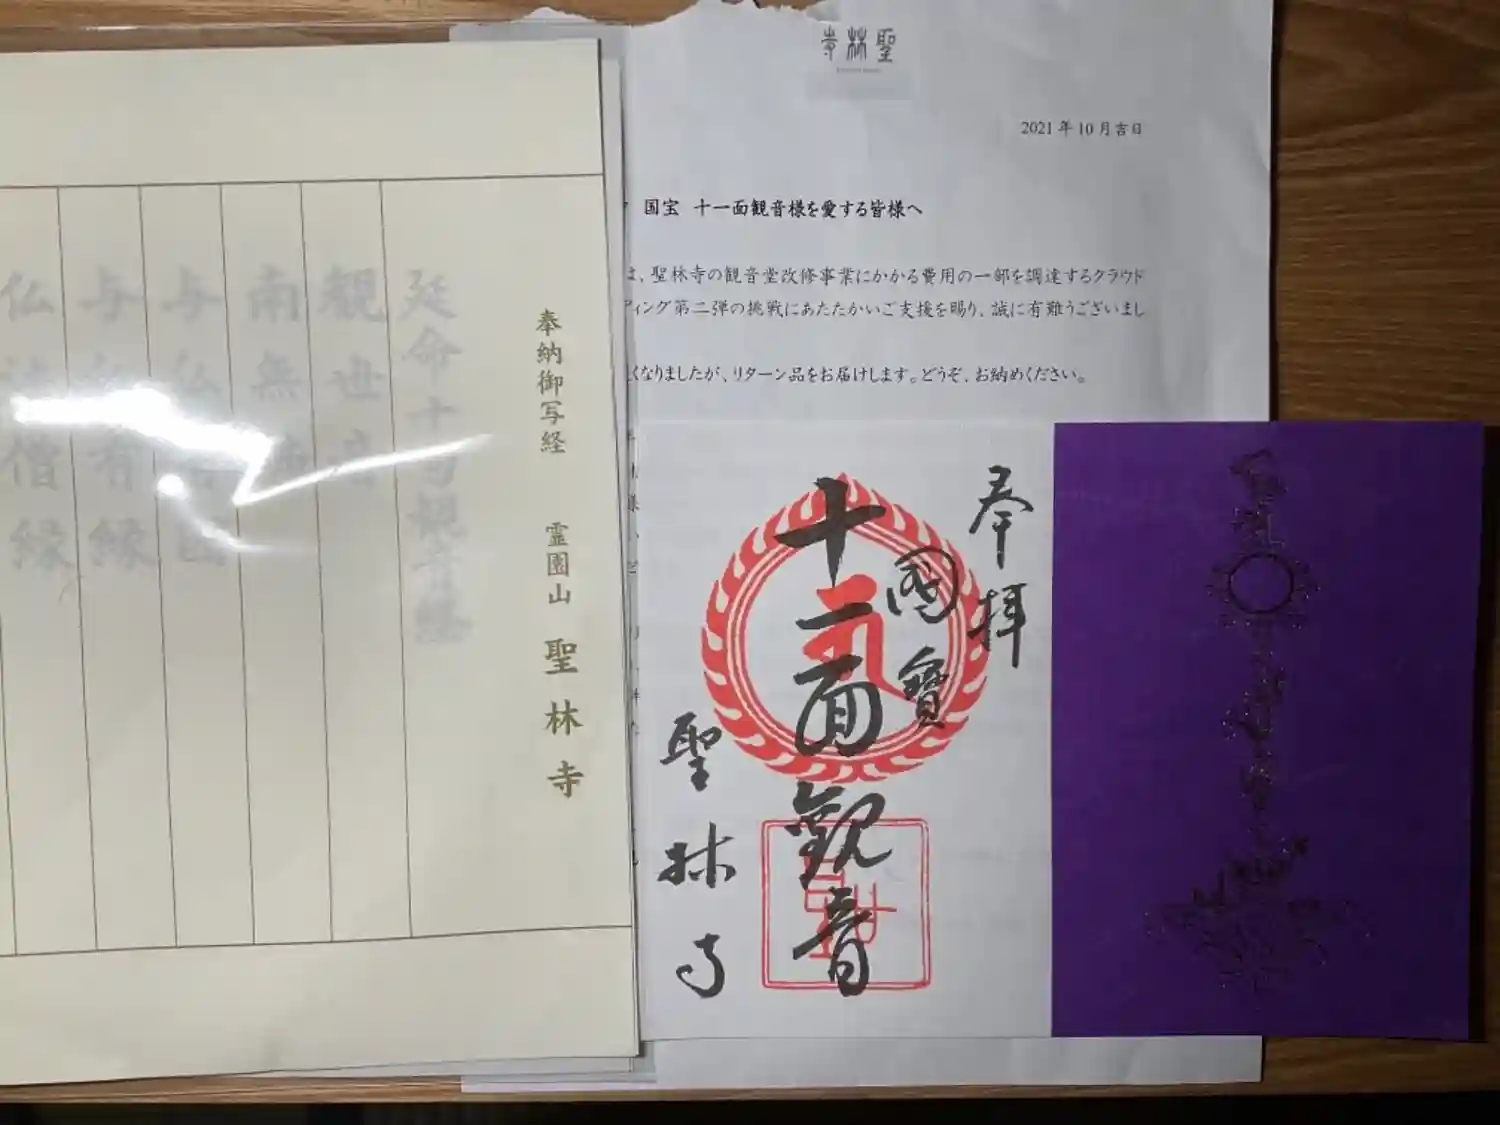 聖林寺
2021年10月吉日
国宝 十一面観音様を愛する皆様へ
は、聖林寺の観音堂改修事業にかかる費用の一部を調達するクラウド
ィング第二弾の挑戦にあたたかいご支援を賜り、誠に有難うございまし
くなりましたが、リターン品をお届けします。どうぞ、お納めください。
奉納御写経 霊園山 聖林寺
延命十句観音経
観世音
南無佛
与仏有因
与仏有縁
仏法僧縁
奉拝
國寶
十一面観音
聖林寺